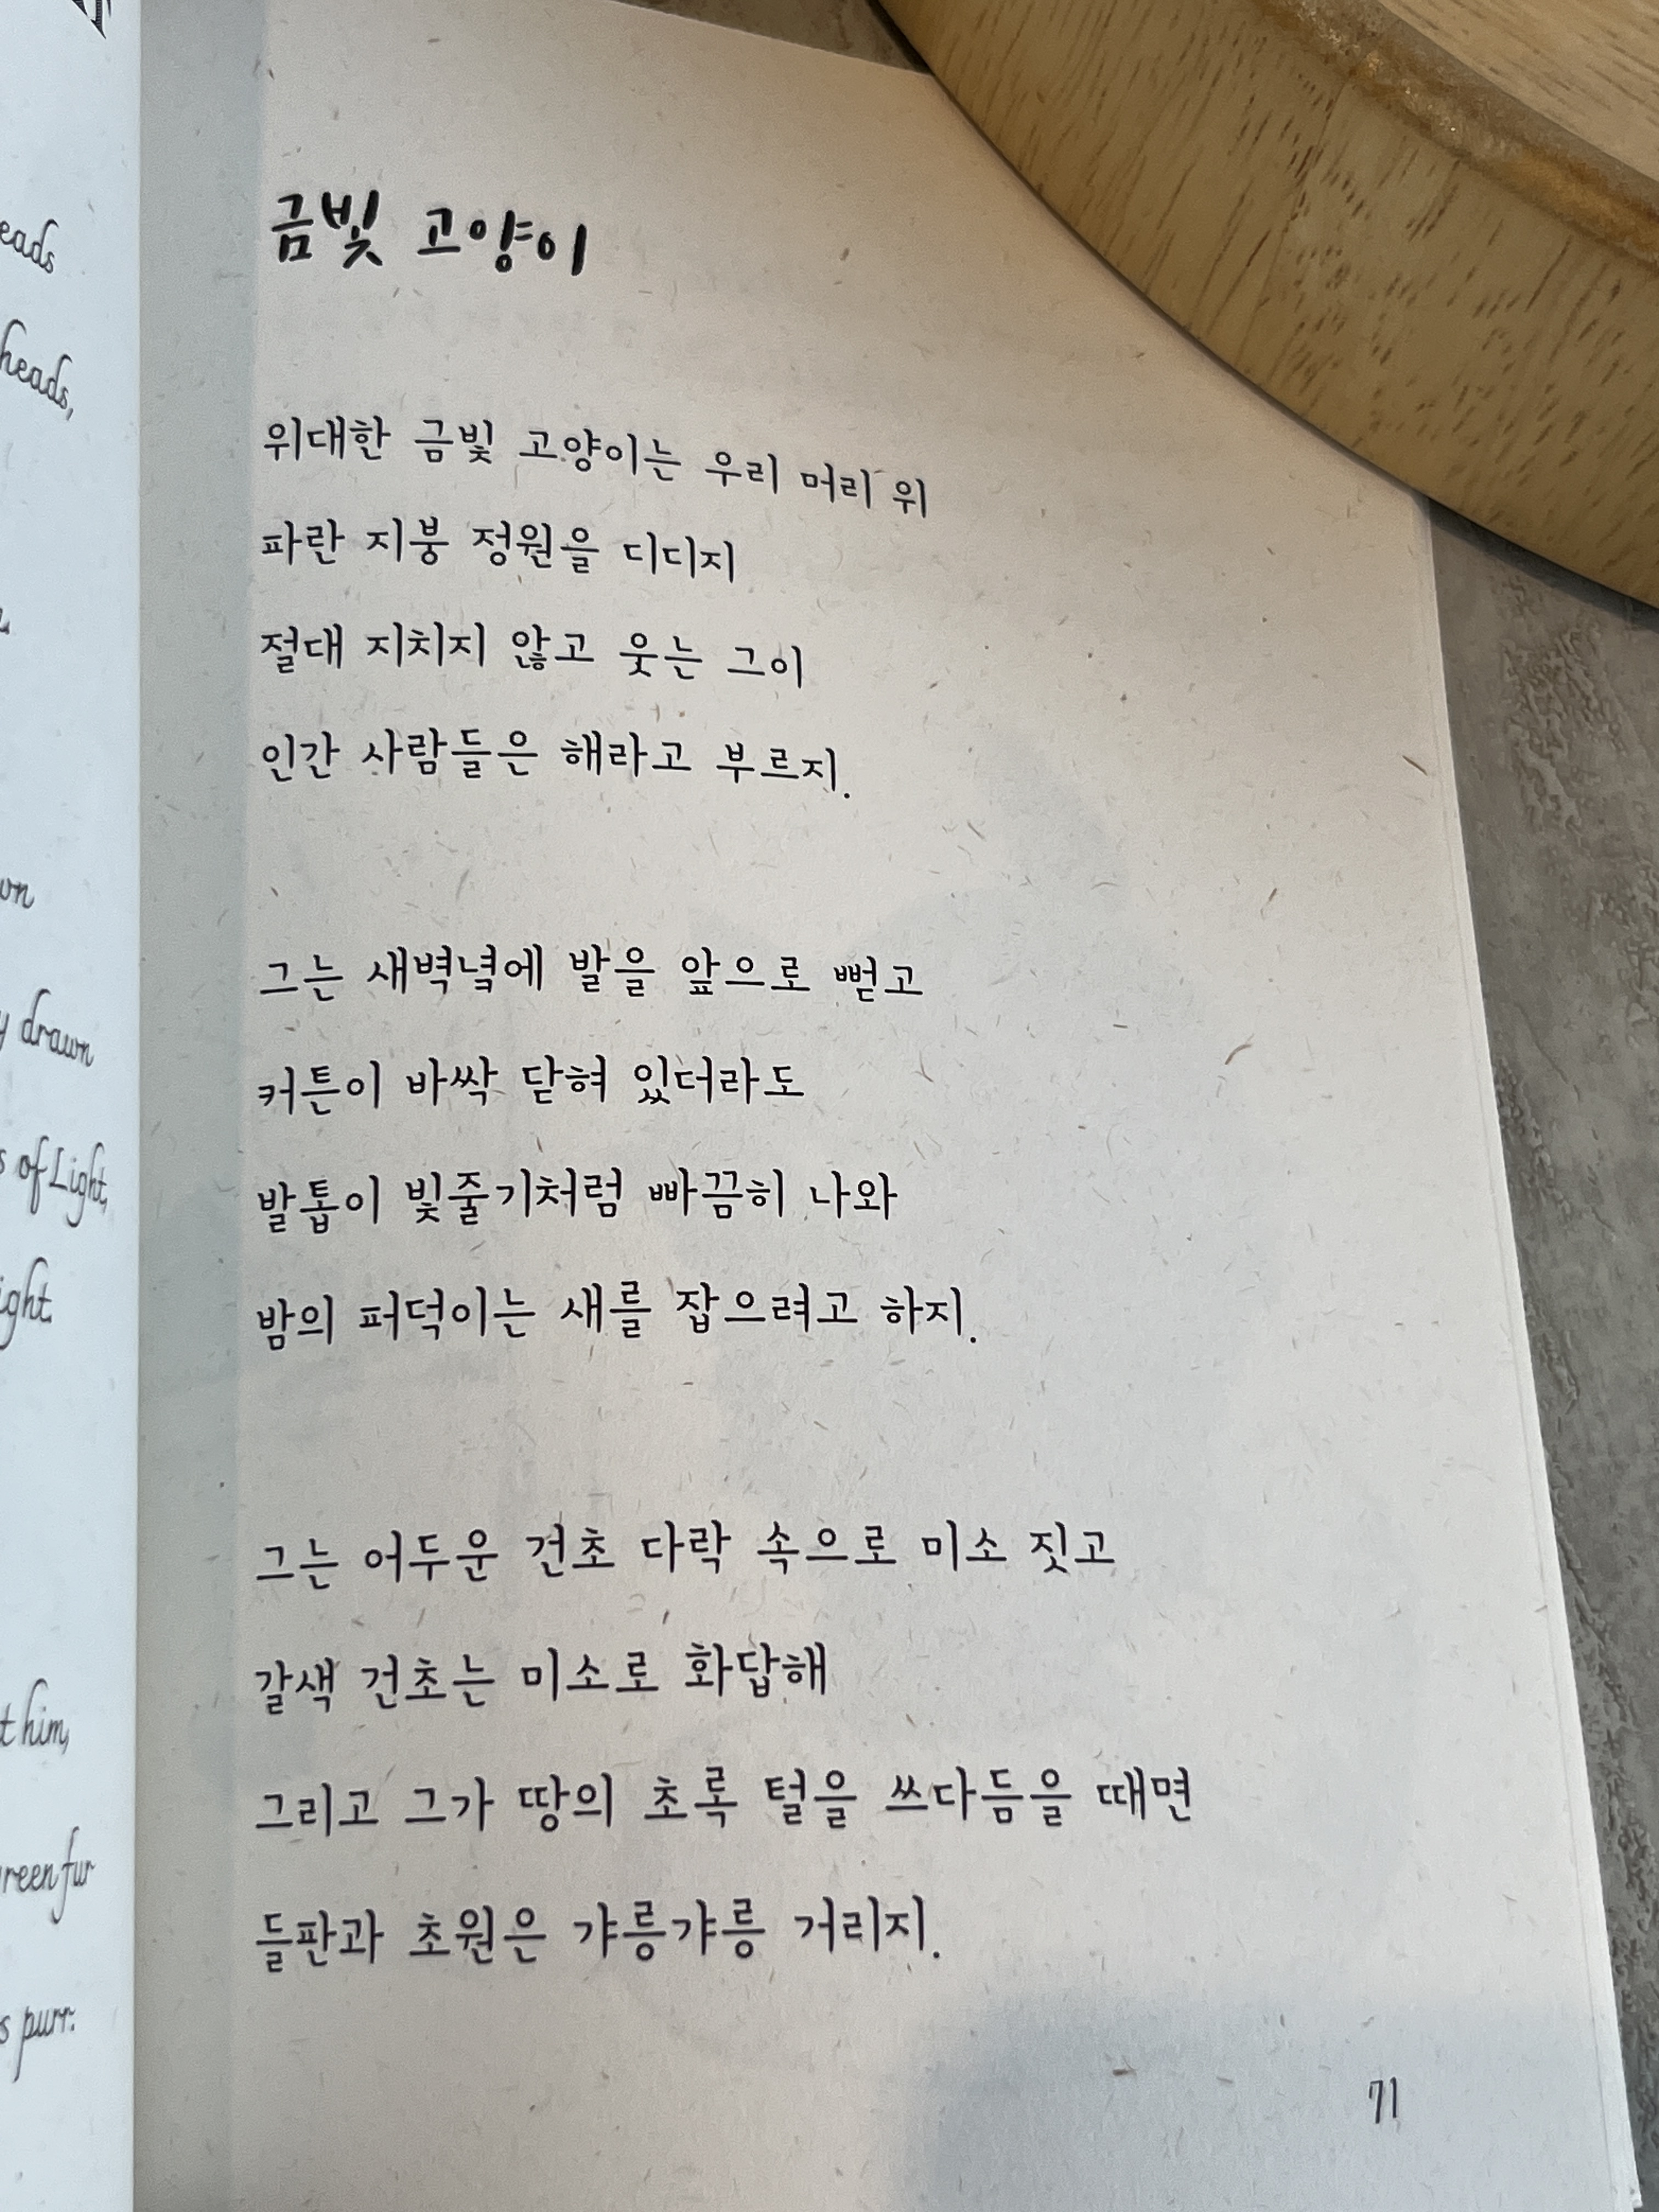 eads
heads,
wn
y drawn
s of Light,
ight.
t him,
reen fur
s purr.
금빛 고양이
위대한 금빛 고양이는 우리 머리 위
파란 지붕 정원을 디디지
절대 지치지 않고 웃는 그이
인간 사람들은 해라고 부르지.
그는 새벽녘에 발을 앞으로 뻗고
커튼이 바싹 닫혀 있더라도
발톱이 빛줄기처럼 빠끔히 나와
밤의 퍼덕이는 새를 잡으려고 하지.
그는 어두운 건초 다락 속으로 미소 짓고
갈색 건초는 미소로 화답해
그리고 그가 땅의 초록 털을 쓰다듬을 때면
들판과 초원은 갸릉갸릉 거리지.
71